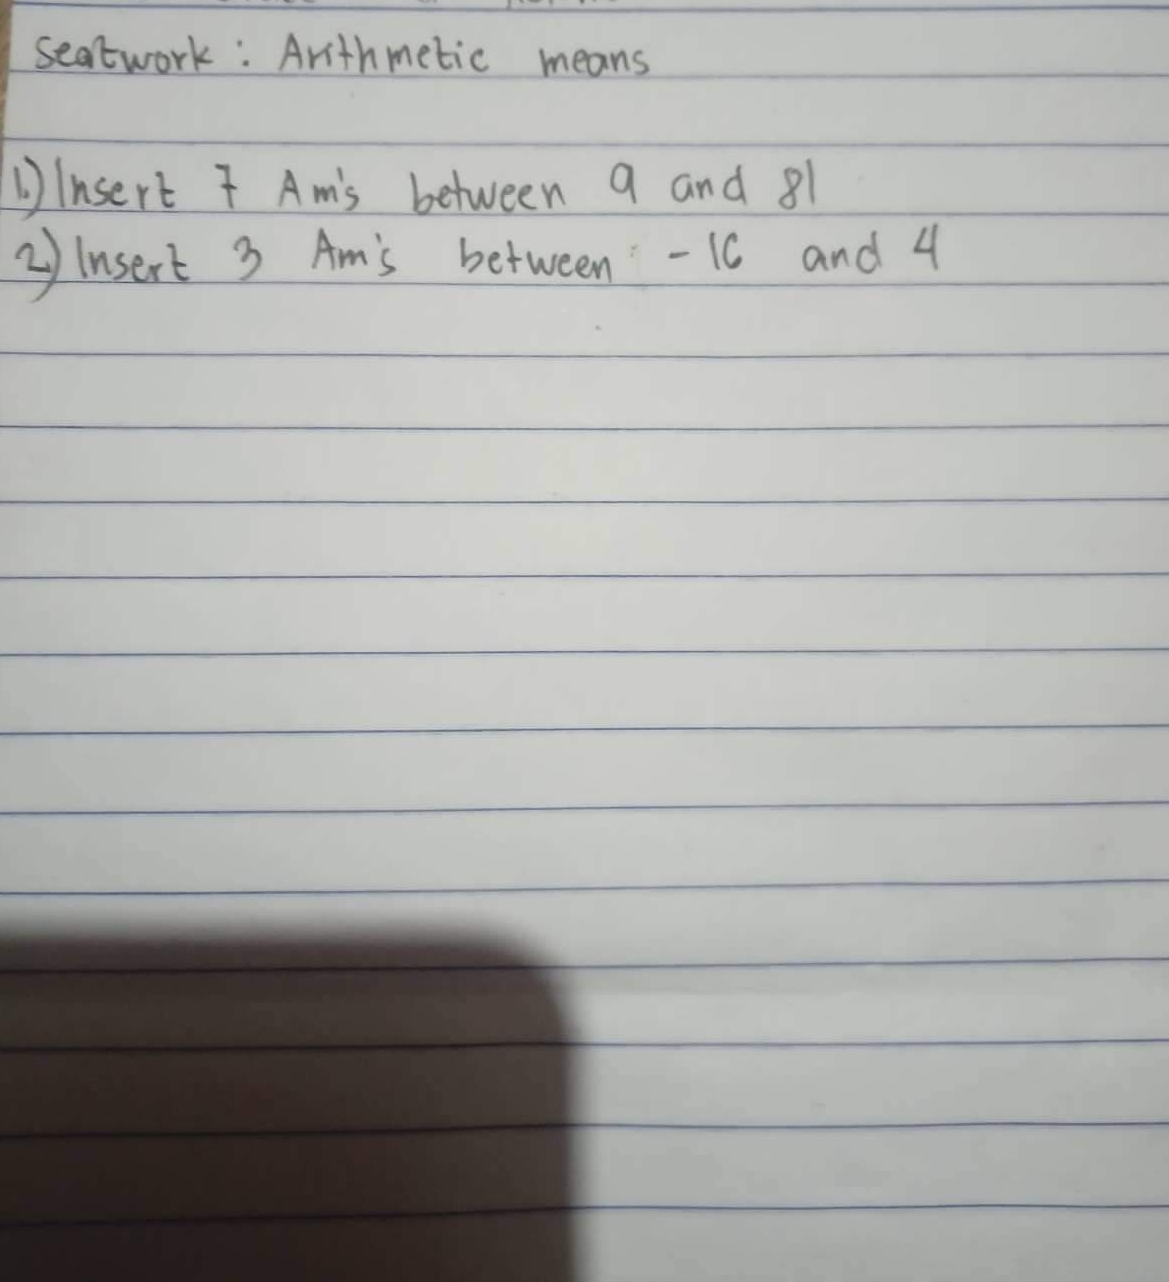 Seatwork : Arithmetic means
1.) Insert 7 Am's between 9 and 81
2.) Insert 3 Am's between -16 and 4